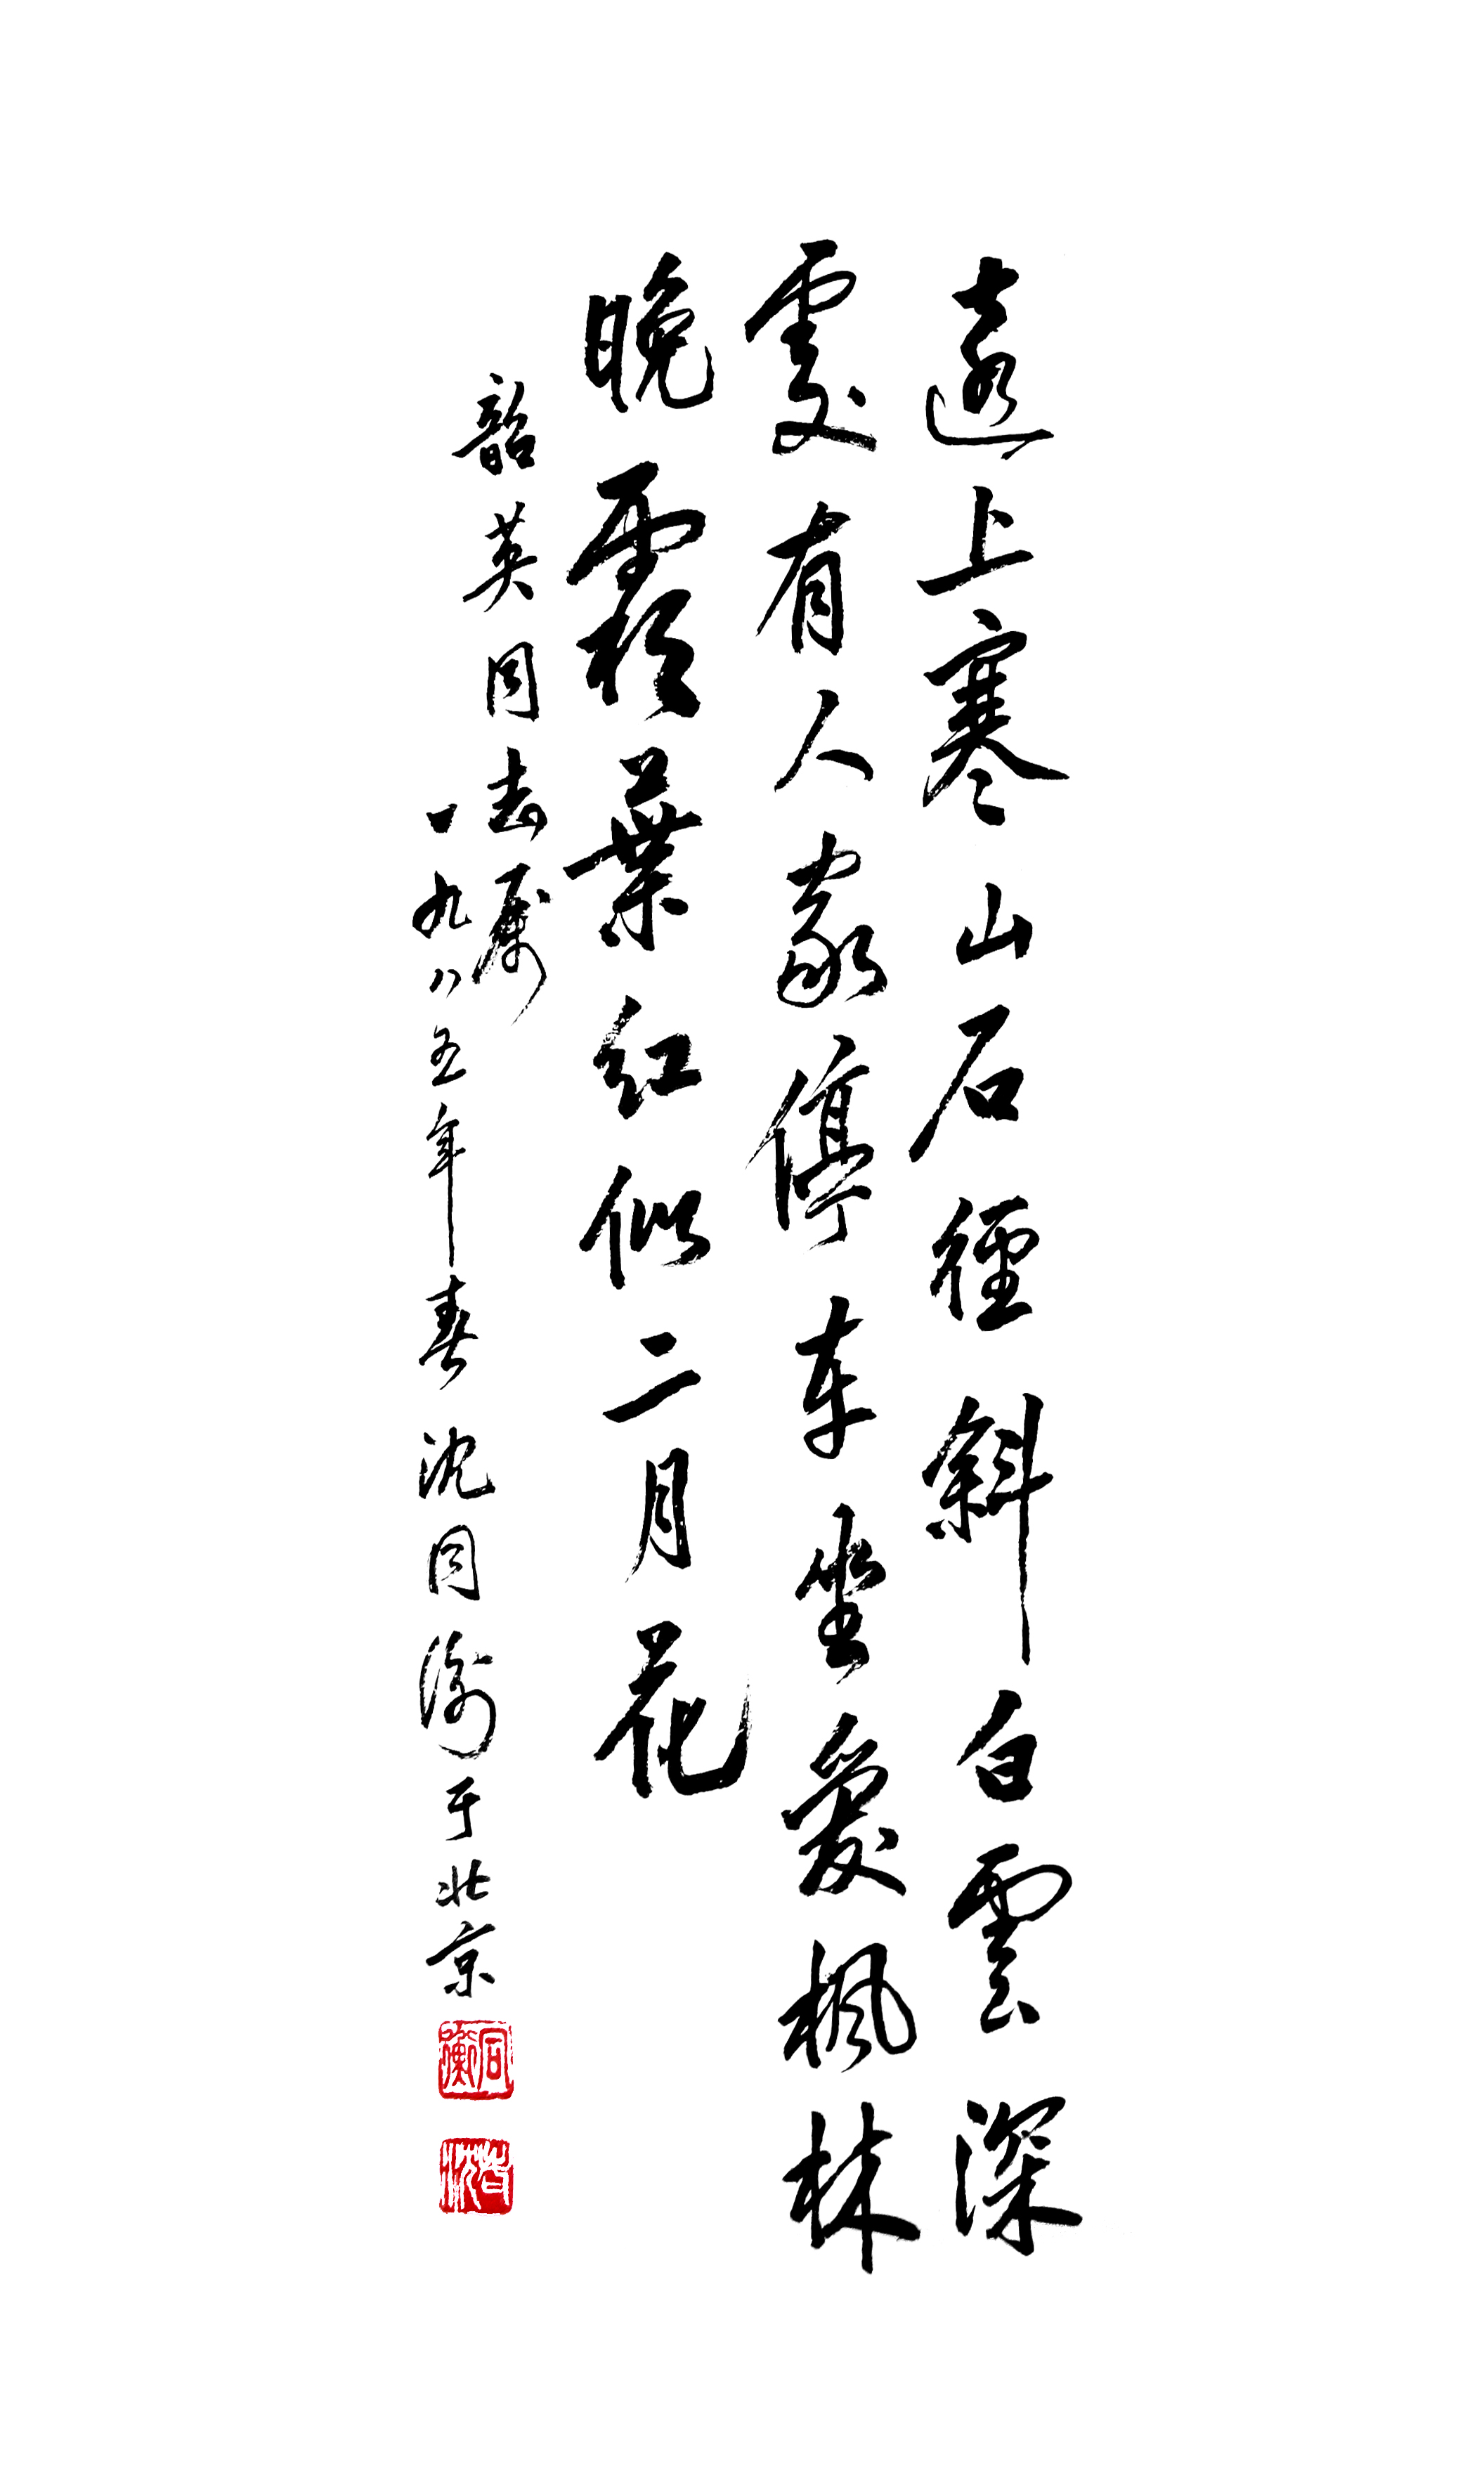 遠上寒山石徑斜白雲深
處有人家停車坐愛楓林
晚霜葉红似二月花
韶英同志属
一九八五年春沈同衡于北京
同衡